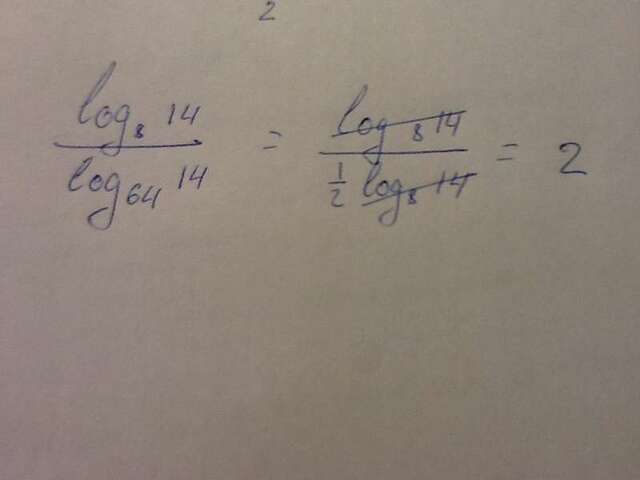 2
log₈ 14 / log₆₄ 14 = log₈ 14 / ½ log₈ 14 = 2